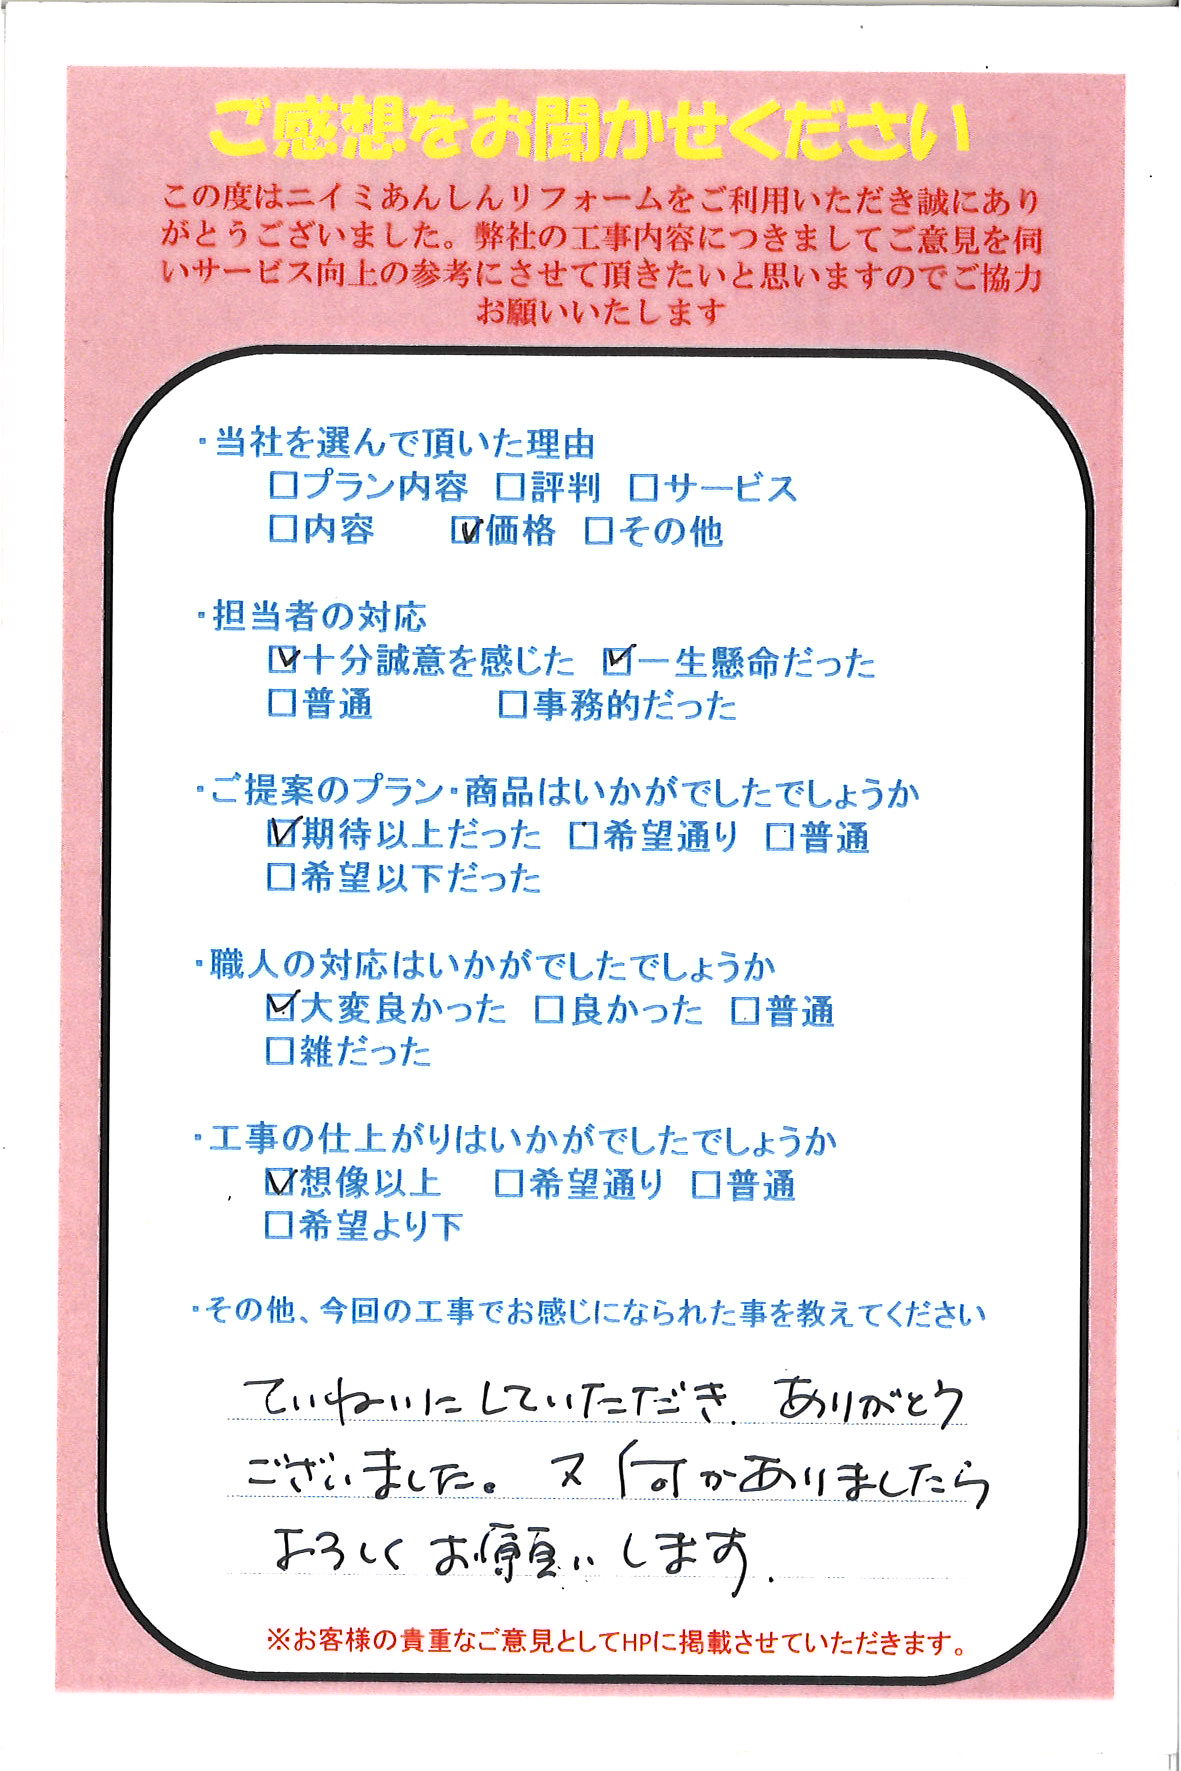 ご感想をお聞かせください
この度はニイミあんしんリフォームをご利用いただき誠にあり
がとうございました。弊社の工事内容につきましてご意見を伺
いサービス向上の参考にさせて頂きたいと思いますのでご協力
お願いいたします
・当社を選んで頂いた理由
□プラン内容 □評判 □サービス
□内容 ☑価格 □その他
・担当者の対応
☑十分誠意を感じた ☑一生懸命だった
□普通 □事務的だった
・ご提案のプラン・商品はいかがでしたでしょうか
☑期待以上だった □希望通り □普通
□希望以下だった
・職人の対応はいかがでしたでしょうか
☑大変良かった □良かった □普通
□雑だった
・工事の仕上がりはいかがでしたでしょうか
☑想像以上 □希望通り □普通
□希望より下
・その他、今回の工事でお感じになられた事を教えてください
ていねいにしていただき、ありがとう
ございました。又何かありましたら
よろしくお願いします。
※お客様の貴重なご意見としてHPに掲載させていただきます。